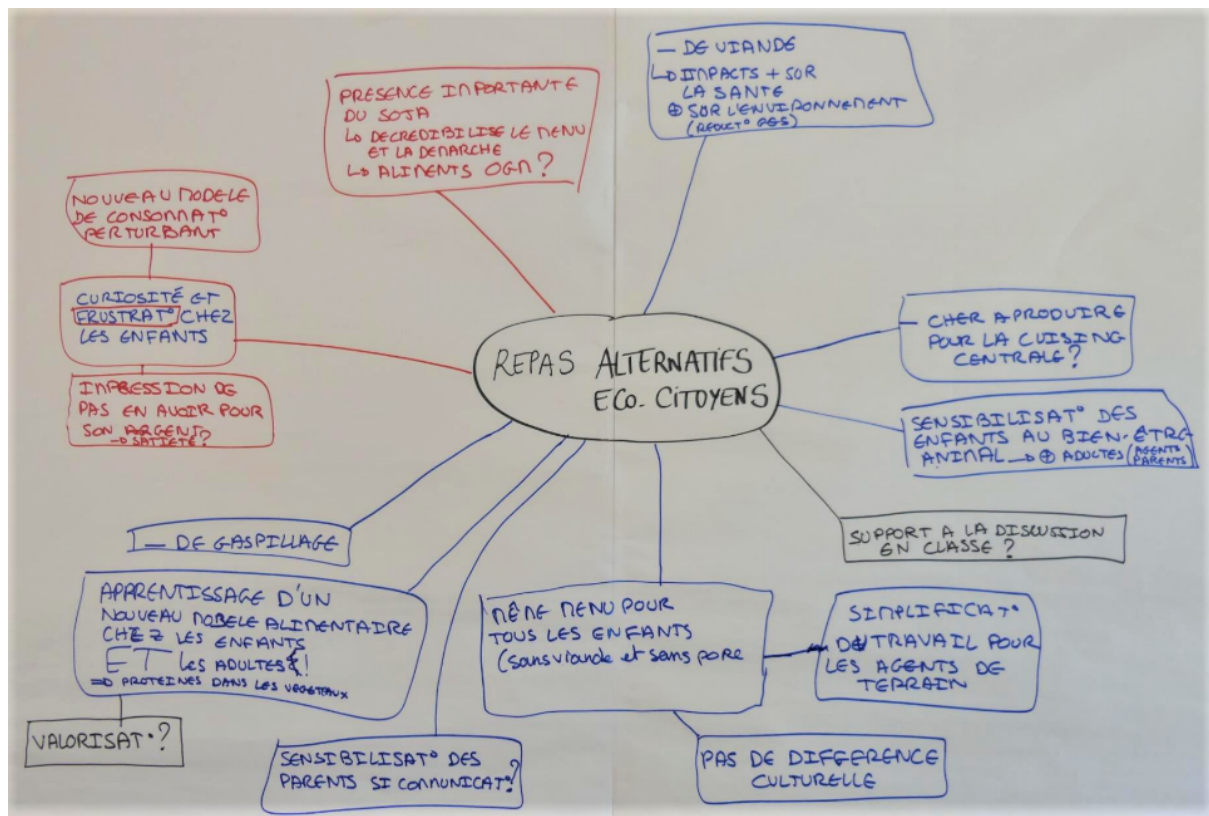 PRESENCE IMPORTANTE
DU SOJA
↳ DECREDIBILISE LE MENU
ET LA DEMARCHE
↳ ALIMENTS OGM?
— DE VIANDE
↳ IMPACTS + SUR
LA SANTE
⊕ SUR L'ENVIRONNEMENT
(REDUCT° GES)
NOUVEAU MODELE
DE CONSOMMAT°
PERTURBANT
CURIOSITÉ ET
FRUSTRAT° CHEZ
LES ENFANTS
IMPRESSION DE
PAS EN AVOIR POUR
SON ARGENT
→ SATIETE?
REPAS ALTERNATIFS
ECO-CITOYENS
— CHER A PRODUIRE
POUR LA CUISINE
CENTRALE?
SENSIBILISAT° DES
ENFANTS AU BIEN-ÊTRE
ANIMAL → ⊕ ADULTES (AGENTS
PARENTS)
SUPPORT A LA DISCUSSION
EN CLASSE?
— DE GASPILLAGE
APPRENTISSAGE D'UN
NOUVEAU MODELE ALIMENTAIRE
CHEZ LES ENFANTS
ET LES ADULTES!
⇒ PROTEINES DANS LES VEGETAUX
VALORISAT°?
SENSIBILISAT° DES
PARENTS SI COMMUNICAT°?
MÊME MENU POUR
TOUS LES ENFANTS
(sans viande et sans porc
SIMPLIFICAT°
DU TRAVAIL POUR
LES AGENTS DE
TERRAIN
PAS DE DIFFERENCE
CULTURELLE